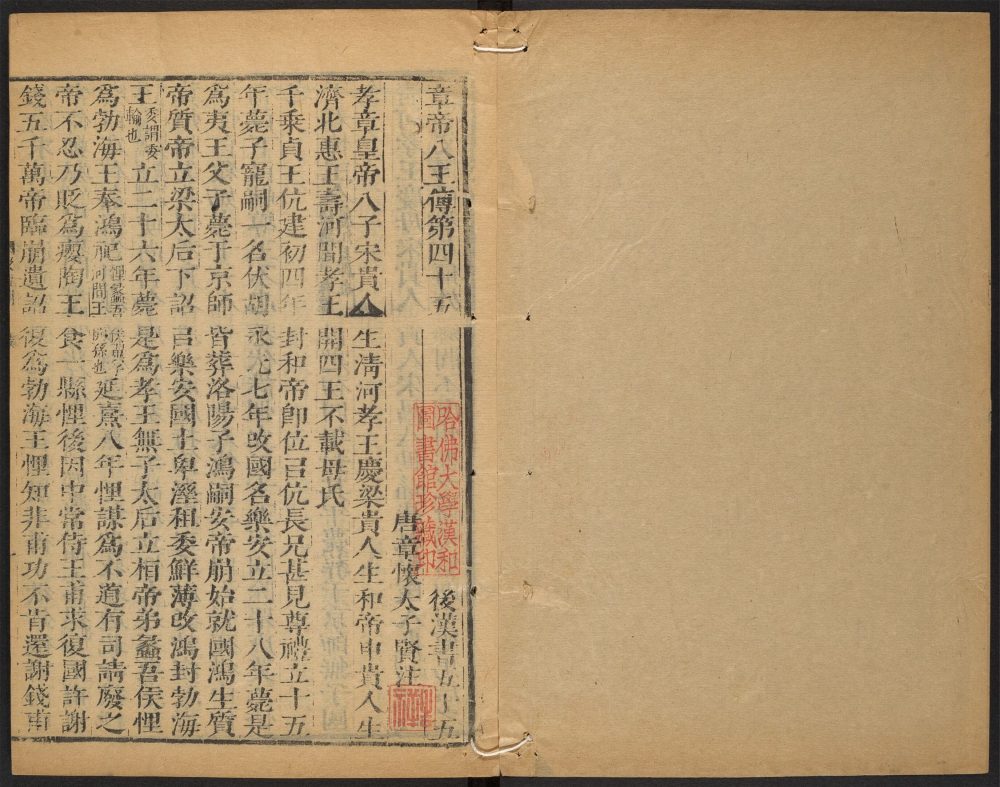 章帝八王傳第四十五 後漢書五十五
唐章懷太子賢注
孝章皇帝八子宋貴人生清河孝王慶梁貴人生和帝申貴人生
濟北惠王壽河間孝王開四王不載母氏
千乘貞王伉建初四年封和帝即位㠯伉長兄甚見尊禮立十五
年薨子寵嗣一名伏胡永元七年改國名樂安立二十八年薨是
為夷王父子薨于京師皆葬洛陽子鴻嗣安帝崩始就國鴻生質
帝質帝立梁太后下詔㠯樂安國土卑溼租委鮮薄改鴻封勃海
王委謂委輸也立二十六年薨是為孝王無子太后立桓帝弟蠡吾侯悝
為勃海王奉鴻祀悝蠡吾侯翼子河間王開孫也延熹八年悝謀為不道有司請廢之
帝不忍乃貶為癭陶王食一縣悝後因中常侍王甫求復國許謝
錢五千萬帝臨崩遺詔復為勃海王悝知非甫功不肯還謝錢甫
哈佛大學漢和
圖書館珍藏印